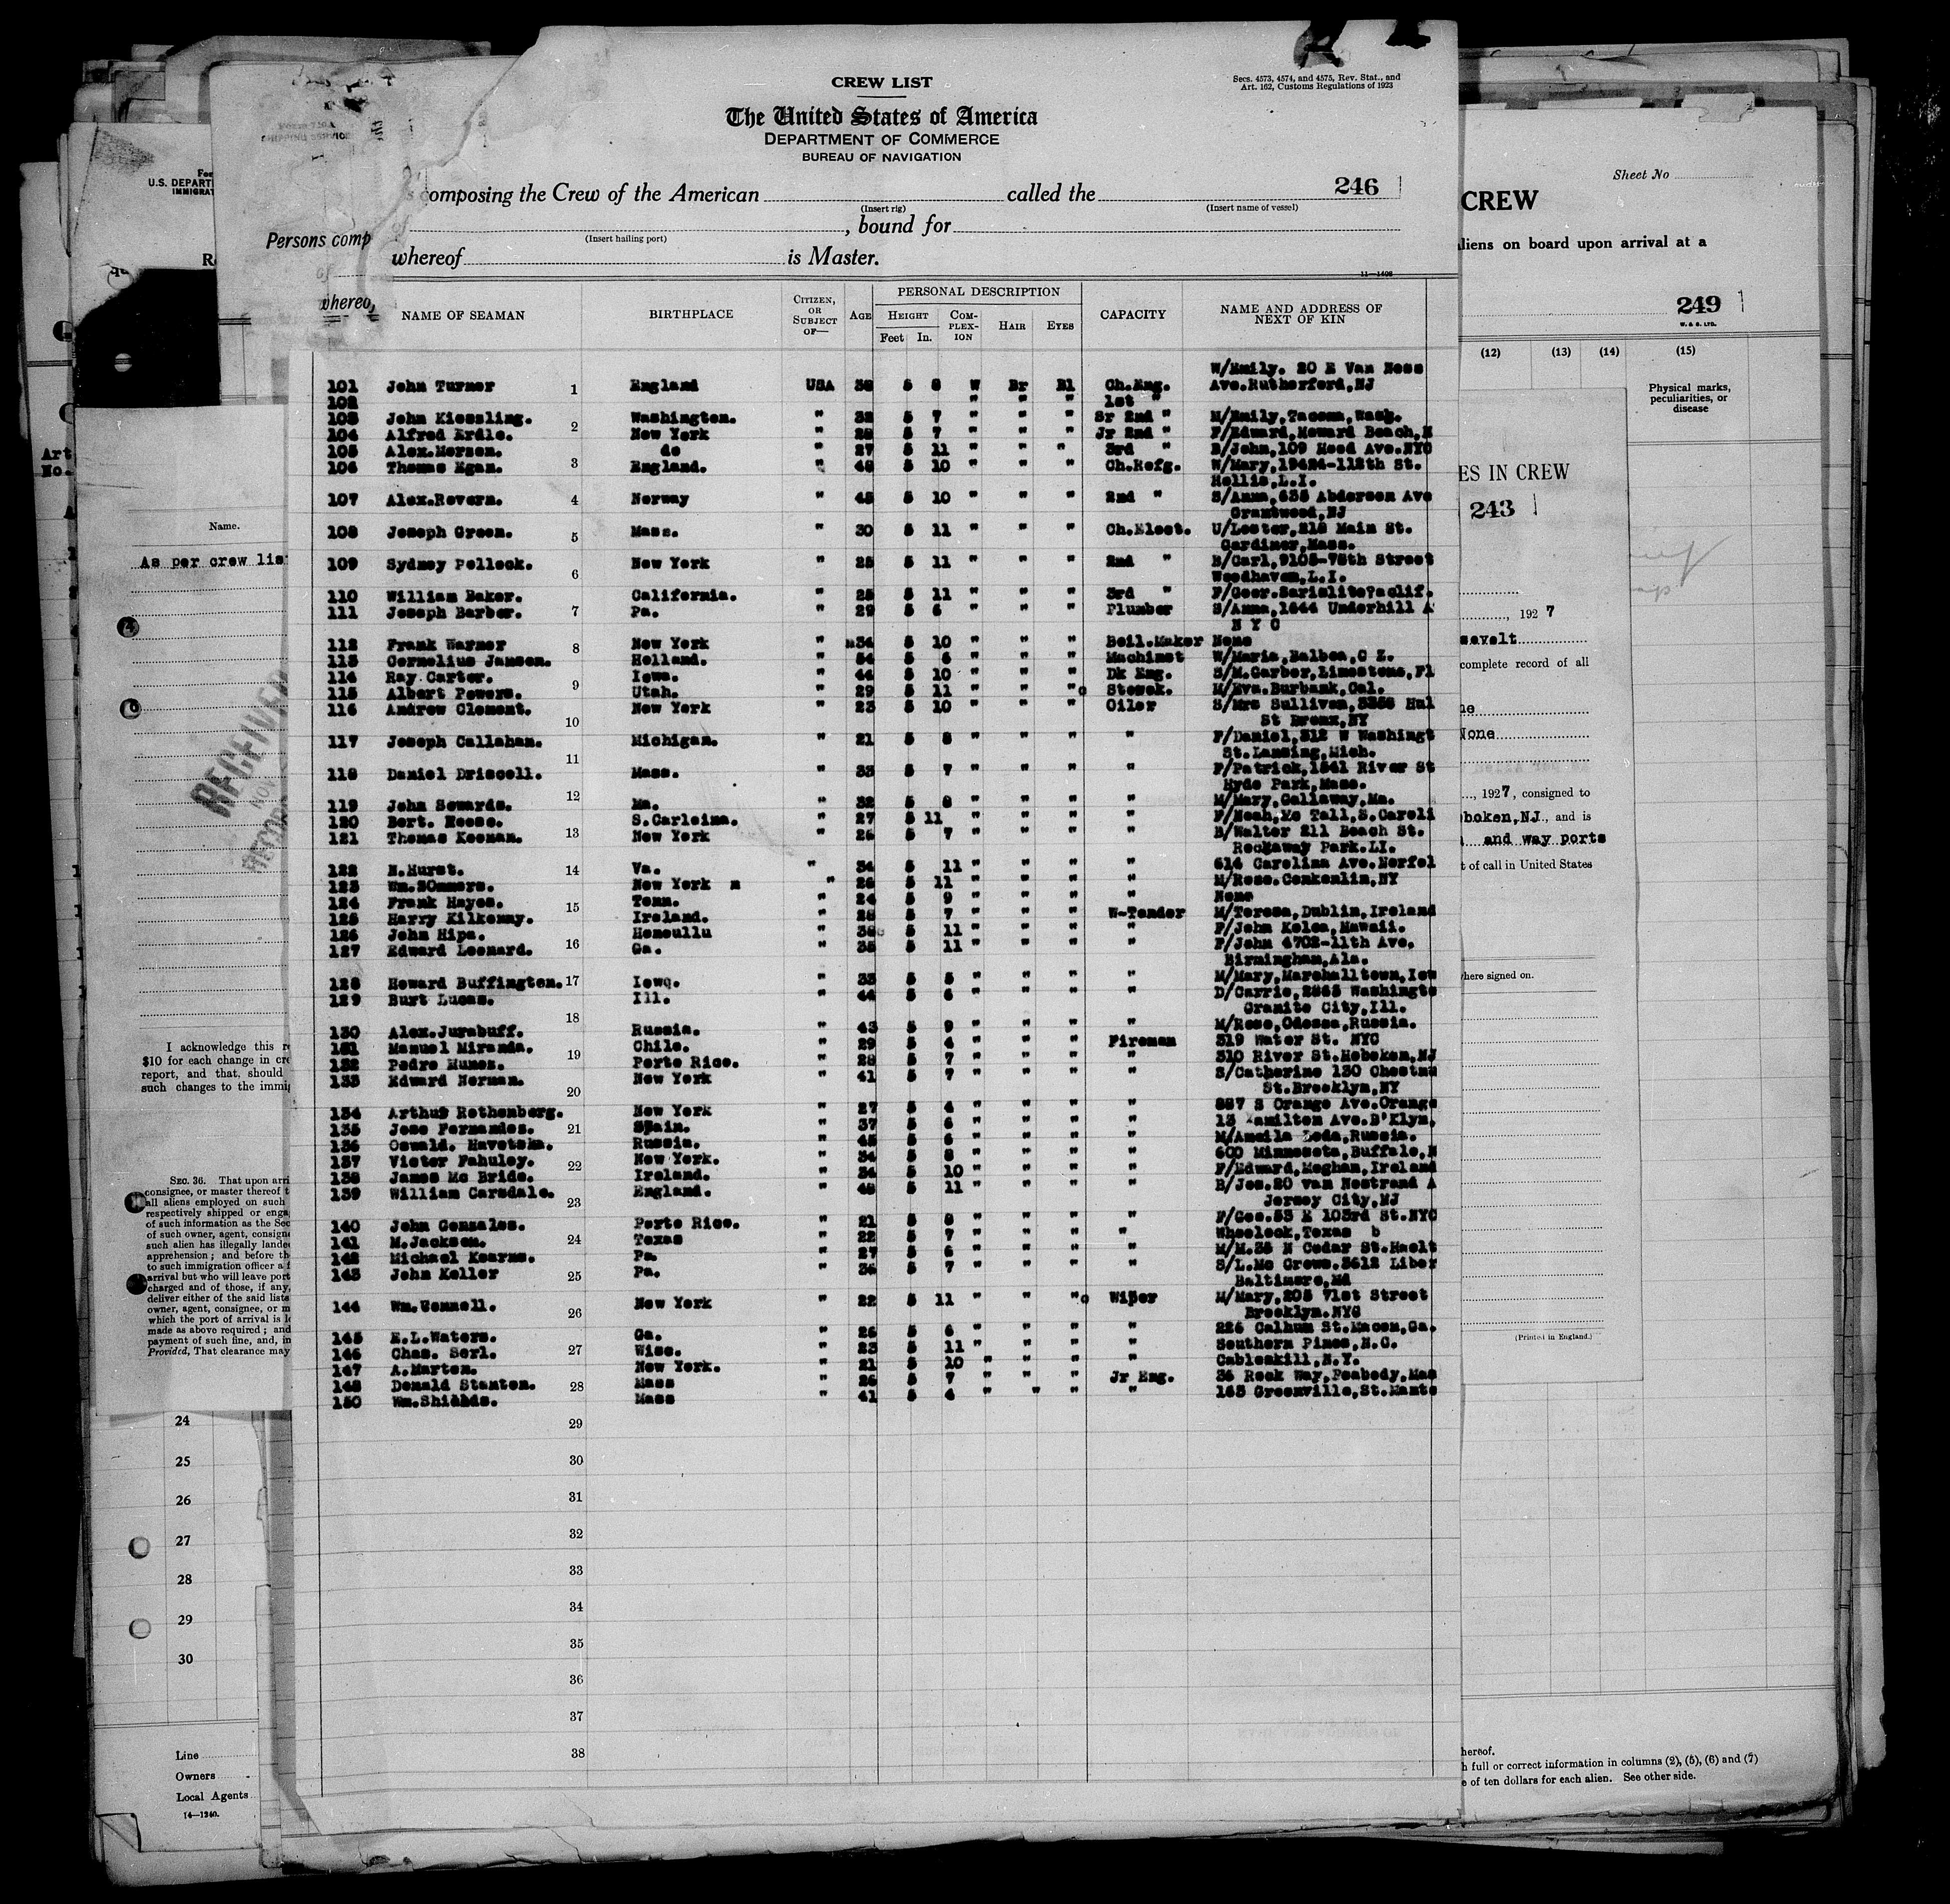 CREW LIST
Secs. 4573, 4574, and 4575, Rev. Stat., and
Art. 162, Customs Regulations of 1923
The United States of America
DEPARTMENT OF COMMERCE
BUREAU OF NAVIGATION
composing the Crew of the American called the 246
(Insert rig) (Insert name of vessel)
Persons comp , bound for
(Insert hailing port)
whereof is Master.
11—1408
NAME OF SEAMAN BIRTHPLACE CITIZEN, OR SUBJECT OF— AGE PERSONAL DESCRIPTION HEIGHT Feet In. COMPLEXION HAIR EYES CAPACITY NAME AND ADDRESS OF NEXT OF KIN
W/Emily. 20 E Van Ness
101 John Turner 1 England USA 5 8 W Br Bl Ch.Eng. Ave.Rutherford,NJ
102 " " " 1st "
103 John Kiessling. Washington. " 32 5 7 " " " Sr 2nd " M/Emily,Tacoma,Wash.
104 Alfred Erdle. 2 New York " 28 5 7 " " " Jr 2nd " F/Edward,Howard Beach,N
105 Alex.Morzen. do " 27 5 11 " " " 3rd " B/John,109 Reed Ave.NYC
106 Thomas Egan. 3 England. " 48 5 10 " " " Ch.Refg. W/Mary,
Hollis,L.I.
107 Alex.Revern. 4 Norway " 45 5 10 " " " 2nd " S/Anna,635 Abderson Ave
Grantwood,NJ
108 Joseph Green. 5 Mass. " 30 5 11 " " " Ch.Elect. U/Lester,218 Main St.
Gardiner,Mass.
109 Sydney Pollock. 6 New York " 25 5 11 " " " 2nd " B/Carl,9105-75th Street
Woodhaven,L.I.
110 William Baker. California. " 25 5 11 " " " 3rd "
111 Joseph Barber. 7 Pa. " 29 5 6 " " " Plumber S/Anna,1644 Underhill A
N Y C
112 Frank Warner 8 New York " 34 5 10 " " " Boil.Maker None
113 Cornelius Jansen. Holland. " 54 5 6 " " " Machinst W/Maria,Balboa,C Z.
114 Ray Carter. 9 Iowa. " 44 5 10 " " " Dk Eng. S/M.Garber,Limestone,Fl
115 Albert Powers. Utah. " 29 5 11 " " " Stosek. M/Eva.Burbank,Cal.
116 Andrew Clement. 10 New York " 23 5 10 " " " Oiler S/Mrs Sullivan,3356 Hul
St Bronx,NY
117 Joseph Callahan. 11 Michigan. " 21 5 8 " " " " F/Daniel,312 W Washingt
St.Lansing,Mich.
118 Daniel Driscoll. 12 Mass. " 33 5 7 " " " " F/Patrick,1541 River St
Hyde Park,Mass.
119 John Sewards. Mo. " 32 5 8 " " " " M/Mary,Callaway,Mo.
120 Bert. Reese. 13 S.Carloina. " 27 5 11 " " " " F/Noah,Mc Tall,S.Caroli
121 Thomas Keenan. New York " 26 5 7 " " " " B/Walter 211 Beach St.
Rockaway Park.LI.
122 N.Hurst. 14 Va. " 34 5 11 " " " " 614 Carolina Ave.Norfol
123 Wm.SOmmers. New York m " 26 5 11 " " " " M/Rose.Conkonlin,NY
124 Frank Hayes. 15 Tenn. " 24 5 9 " " " " None
125 Harry Kilkenny. Ireland. " 28 5 7 " " " W-Tender M/Teresa,Dublin,Ireland
126 John Hipa. 16 Honoullu " 5 11 " " " " F/John Koloa,Hawaii.
127 Edward Leonard. Ga. " 35 5 11 " " " " F/John 4702-11th Ave.
Birmingham,Ala.
128 Howard Buffington. 17 Iowq. " 33 5 5 " " " " M/Mary,Marshalltown,Iow
129 Burt Lucas. Ill. " 44 5 6 " " " " D/Carrie,2865 Washingto
18 Granite City,Ill.
130 Alex.Jurabuff. Russia. " 43 5 9 " " " " M/Rose,Odessa,Russia.
131 Manuel Miranda. 19 Chile. " 29 5 4 " " " Fireman 319 Water St. NYC
132 Pedro Munoz. Porto Rico. " 28 5 7 " " " " 310 River St.Hoboken,NJ
133 Edward Norman. 20 New York " 41 5 7 " " " " S/Catherine 130 Chestnu
St.Brooklyn,NY
134 Arthur Rothenberg. New York " 27 5 4 " " " " 887 S Orange Ave.Orange
135 Jose Fernandes. 21 Spain. " 37 5 6 " " " " 13 Hamilton Ave.B'Klyn,
136 Oswald. Havetska. Russia. " 45 5 6 " " " " M/Ameila Loda,Russia.
137 Victor Fahuley. 22 New York. " 34 5 8 " " " " 600 Minnesota,Buffalo,N
138 James Mc Bride. Ireland. " 34 5 10 " " " " F/Edward,Meghan,Ireland
139 William Carsdale. 23 England. " 48 5 11 " " " " B/Jos.20 van Nostrand A
Jersey City,NJ
140 John Gonzales. Porto Rico. " 21 5 8 " " " " F/Geo.53 E 103rd St.NYC
141 M.Jackson. 24 Texas " 22 5 7 " " " " Wheelock,Texas b
142 Michael Kearns. Pa. " 27 5 6 " " " " M/M.35 N Cedar St.Hazlt
143 John Keller 25 Pa. " 36 5 7 " " " " S/L.Mc Crews.3612 Liber
Baltimore,Md
144 Wm.Connell. 26 New York " 22 5 11 " " " Wiper M/Mary,205 71st Street
Brooklyn.NYC
145 E.L.Waters. Ga. " 26 5 6 " " " " 226 Calhum St.Macon,Ga.
146 Chas. Serl. 27 Wisc. " 23 5 11 " " " " Southern Pines,N.C.
147 A.Marten. New York. " 21 5 10 " " " " Cableskill,N.Y.
148 Donald Stanton. 28 Mass " 26 5 7 " " " Jr Eng. 36 Rock Way,Peabody,Mas
150 Wm.Shields. Mass " 41 5 4 " " " " 163 Greenville,St.Mants
29
30
31
32
33
34
35
36
37
38
U.S. DEPART
IMMIGRAT
Name.
As per crew lis
RECEIVED
NOV
I acknowledge this re
$10 for each change in cre
report, and that, should
such changes to the immig
SEC. 36. That upon arri
consignee, or master thereof t
all aliens employed on such
respectively shipped or enga
of such information as the Sec
of such owner, agent, consign
such alien has illegally lande
apprehension; and before th
to such immigration officer a f
arrival but who will leave port
charged and of those, if any,
deliver either of the said lists
owner, agent, consignee, or m
which the port of arrival is l
made as above required; and
payment of such fine, and, in
Provided, That clearance may
24
25
26
27
28
29
30
Line
Owners
Local Agents
14—1240.
Sheet No
CREW
aliens on board upon arrival at a
249
W. & S. LTD.
(12) (13) (14) (15)
Physical marks,
peculiarities, or
disease
ES IN CREW
243
, 1927
sevelt
complete record of all
ne
None
, 1927, consigned to
boken,NJ., and is
and way ports
t of call in United States
where signed on.
(Printed in England.)
hereof.
h full or correct information in columns (2), (5), (6) and (7)
e of ten dollars for each alien. See other side.